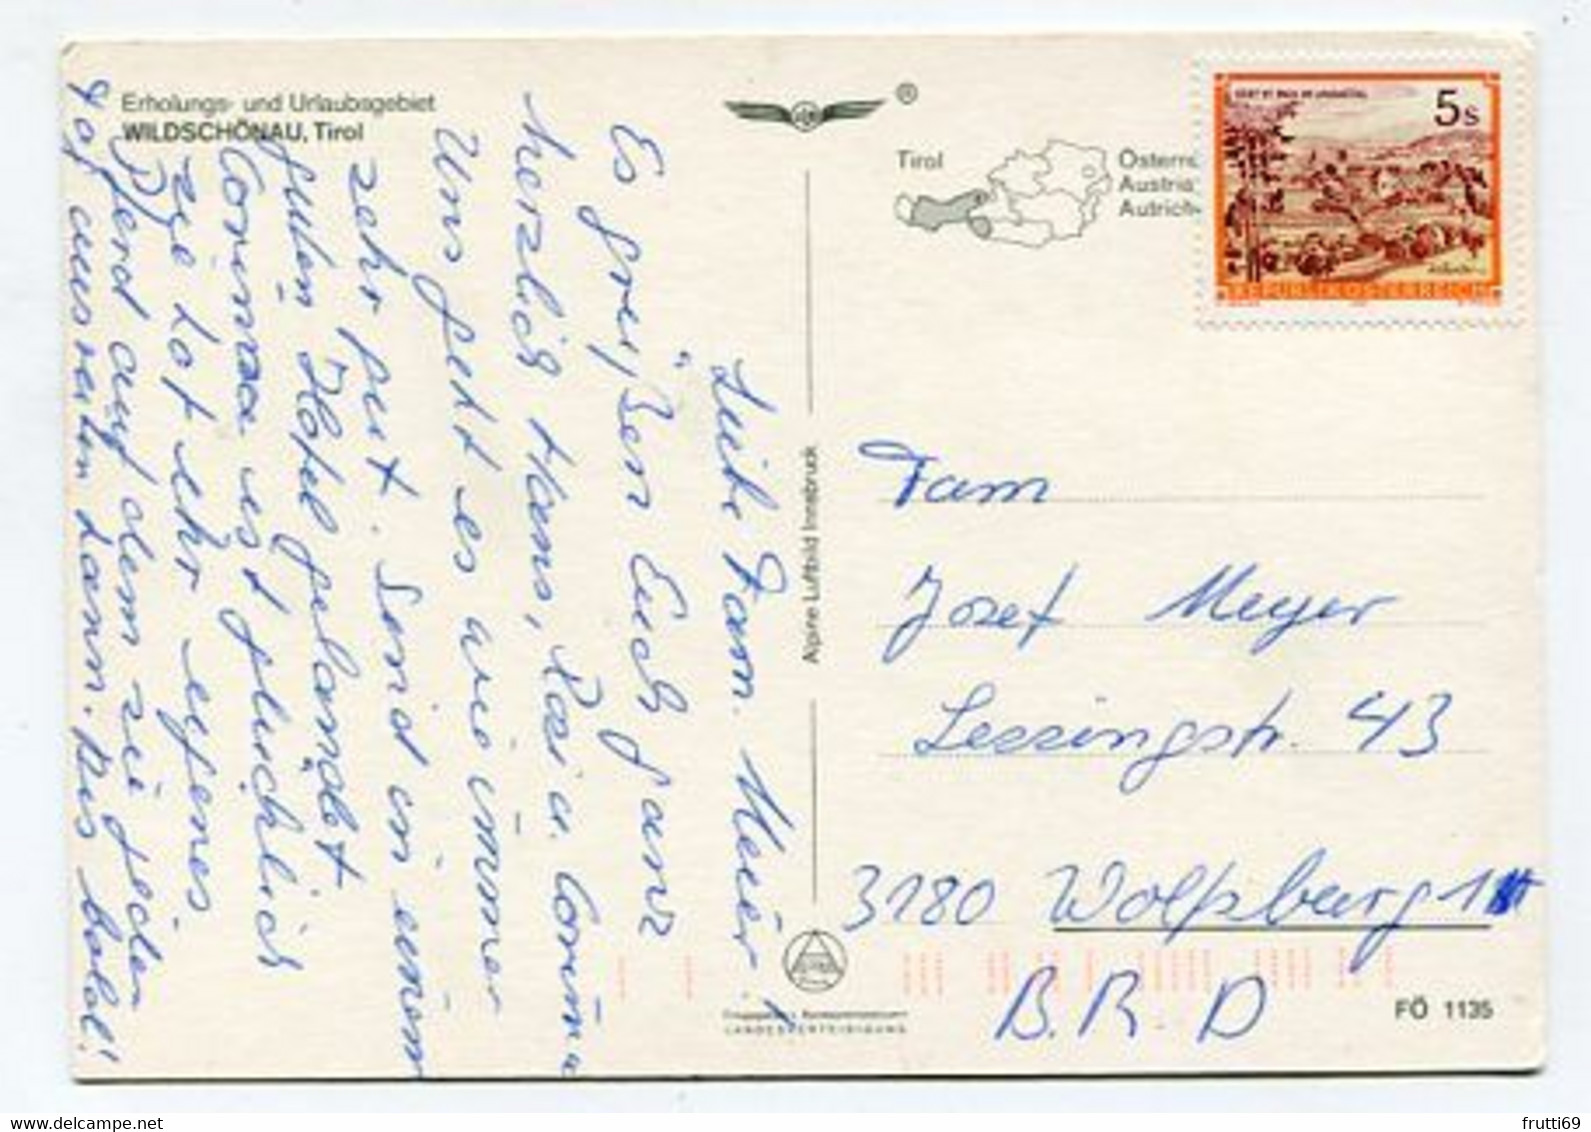 Erholungs- und Urlaubsgebiet
WILDSCHÖNAU, Tirol
®
Tirol
Österre
Austria
Autrich
5s
REPUBLIK ÖSTERREICH
Liebe Fam. Meier!
Es grüßen Euch ganz
herzlich Hans, Rosi u. Corinna
Uns geht es wie immer
sehr gut. Sind in einem
guten Hotel gelandet
Corinna ist glücklich
sie hat ihr eigenes
Pferd auf dem sie jeden
Tag ausreiten kann. Bis bald!
Alpine Luftbild Innsbruck
Fam
Josef Meyer
Lessingstr. 43
3180 Wolfsburg 1
B.R.D
LANDESVERTEIDIGUNG
FÖ 1135
frutti69